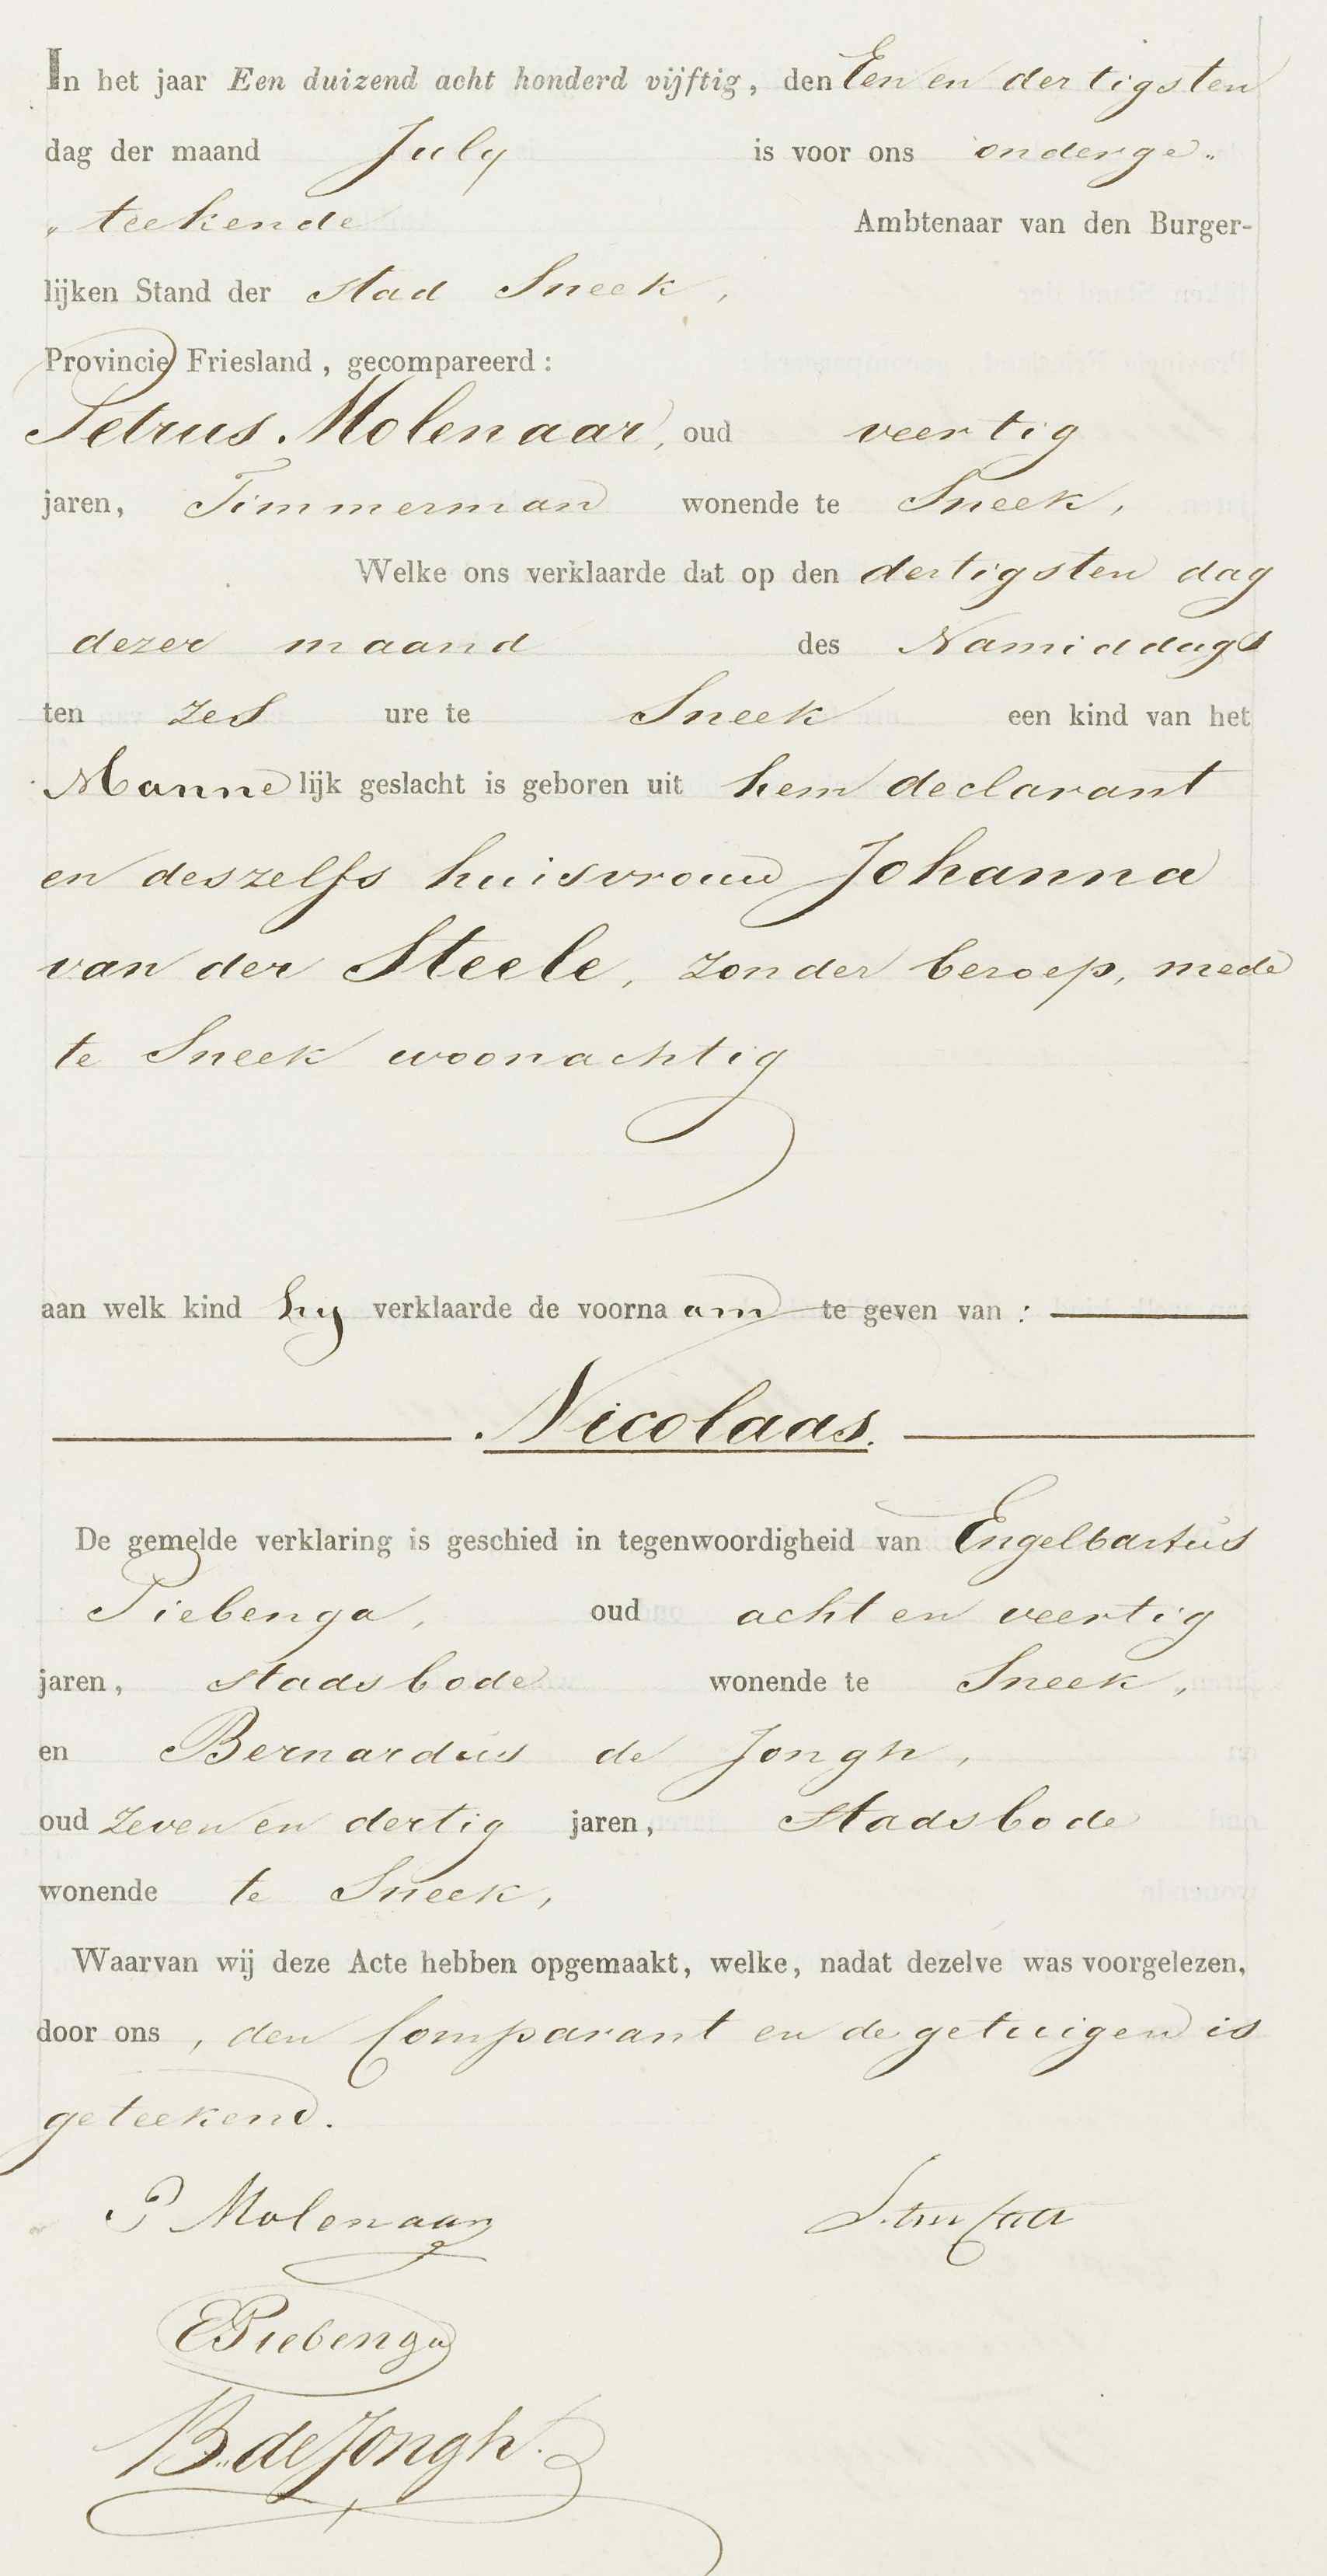 In het jaar Een duizend acht honderd vijftig, den Een en dertigsten
dag der maand July is voor ons onderge„
„teekende Ambtenaar van den Burger-
lijken Stand der stad Sneek,
Provincie Friesland, gecompareerd:
Petrus Molenaar, oud veertig
jaren, Timmerman wonende te Sneek,
Welke ons verklaarde dat op den dertigsten dag
dezer maand des Namiddags
ten zes ure te Sneek een kind van het
Mannelijk geslacht is geboren uit hem declarant
en deszelfs huisvrouw Johanna
van der Steele, zonder beroep, mede
te Sneek woonachtig
aan welk kind hy verklaarde de voornaam te geven van:
Nicolaas.
De gemelde verklaring is geschied in tegenwoordigheid van Engelbartus
Piebenga, oud acht en veertig
jaren, stadsbode wonende te Sneek,
en Bernardus de Jongh,
oud zeven en dertig jaren, Stadsbode
wonende te Sneek,
Waarvan wij deze Acte hebben opgemaakt, welke, nadat dezelve was voorgelezen,
door ons, den Comparant en de getuigen is
geteekend.
P Molenaar
EPiebenga
B. de Jongh.